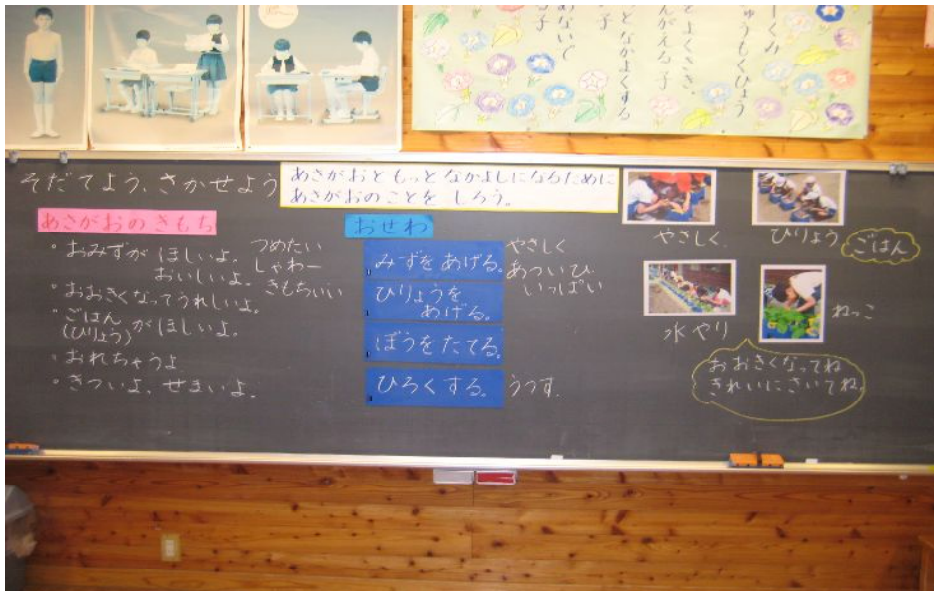 ーくみ
ゅうもくひょう
とよくきき、
んがえる子
となかよくする
子
めないで
る子
そだてよう、さかせよう
あさがおと もっと なかよしになるために
あさがおのことを しろう。
あさがおの きもち
・おみずが ほしいよ。
おいしいよ。
つめたい
しゃわー
きもちいい
・おおきくなってうれしいよ。
・ごはんがほしいよ。
(ひりょう)
・おれちゃうよ
・きついよ、せまいよ。
おせわ
みずを あげる。
やさしく
あついひ
いっぱい
ひりょうを
あげる。
ぼうを たてる。
ひろくする。
うつす。
やさしく
ひりょう
ごはん
水やり
ねっこ
おおきくなってね
きれいにさいてね。